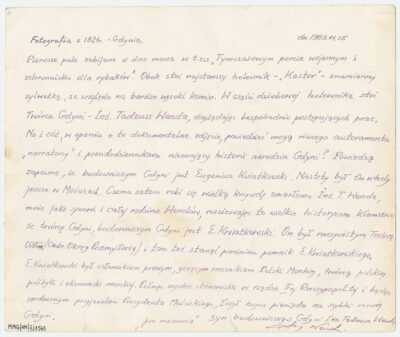 Fotografia z 1921. - Gdynia. dn 1989.11.15
Pierwsze pale zabijane w dno morza w t.zw. „Tymczasowym porcie wojennym i
schronisku dla rybaków". Obok stoi najstarszy holownik - „Kastor" - znamienny
sylwetką, ze względu na bardzo wysoki komin. W części dziobowej holownika stoi
Twórca Gdyni - Inż. Tadeusz Wenda, doglądający bezpośrednio postępujących prac.
No i cóż, w oparciu o to dokumentalne zdjęcie, powiedzieć mogą różnego autoramentu
„narratorzy" i pseudodziennikarze nieznający historii narodzin Gdyni? Powiedzą
zapewne, że budowniczym Gdyni jest Eugeniusz Kwiatkowski. Niestety był On wtedy
jeszcze w Mościcach. Czemu zatem robi się wielką krzywdę zmarłemu Inż. T. Wenda,
mnie jako synowi i całej rodzinie Wendów, rozsiewając to wielkie historyczne kłamstwo
że twórcą Gdyni, budowniczym Gdyni jest E. Kwiatkowski. On był rzeczywistym Twórcą
COPu (Centr. Okręg Przemysłowy) i tam też stanąć powinien pomnik E. Kwiatkowskiego.
E. Kwiatkowski był człowiekiem prawym, gorącym rzecznikiem Polski Morskiej, twórcą polskiej
polityki i ekonomiki morskiej. Pełniąc wysokie stanowiska w rządzie Rzeczypospolitej i będąc
serdecznym przyjacielem Prezydenta Mościckiego, łożył hojnie pieniądze na szybki rozwój
Gdyni.
„pro memoria" Syn budowniczego Gdyni Inż. Tadeusza Wendy
Wenda